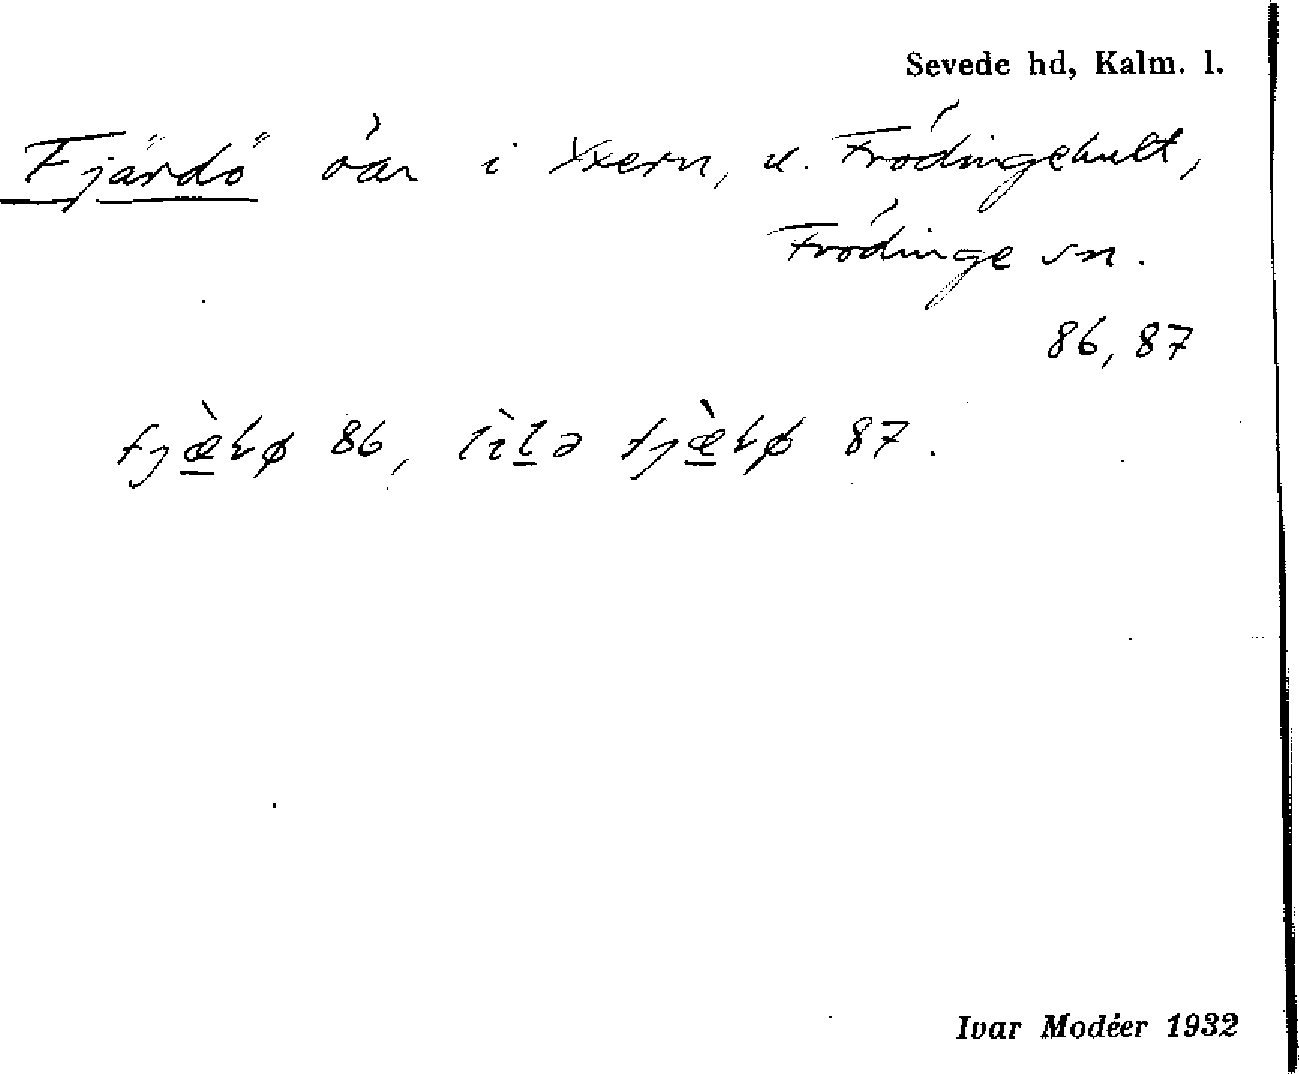 Sevede hd, Kalm. l.
Fjärdö öar i Yxern, u. Frödingehult,
Frödinge sn.
86, 87
86, 87.
Ivar Modéer 1932